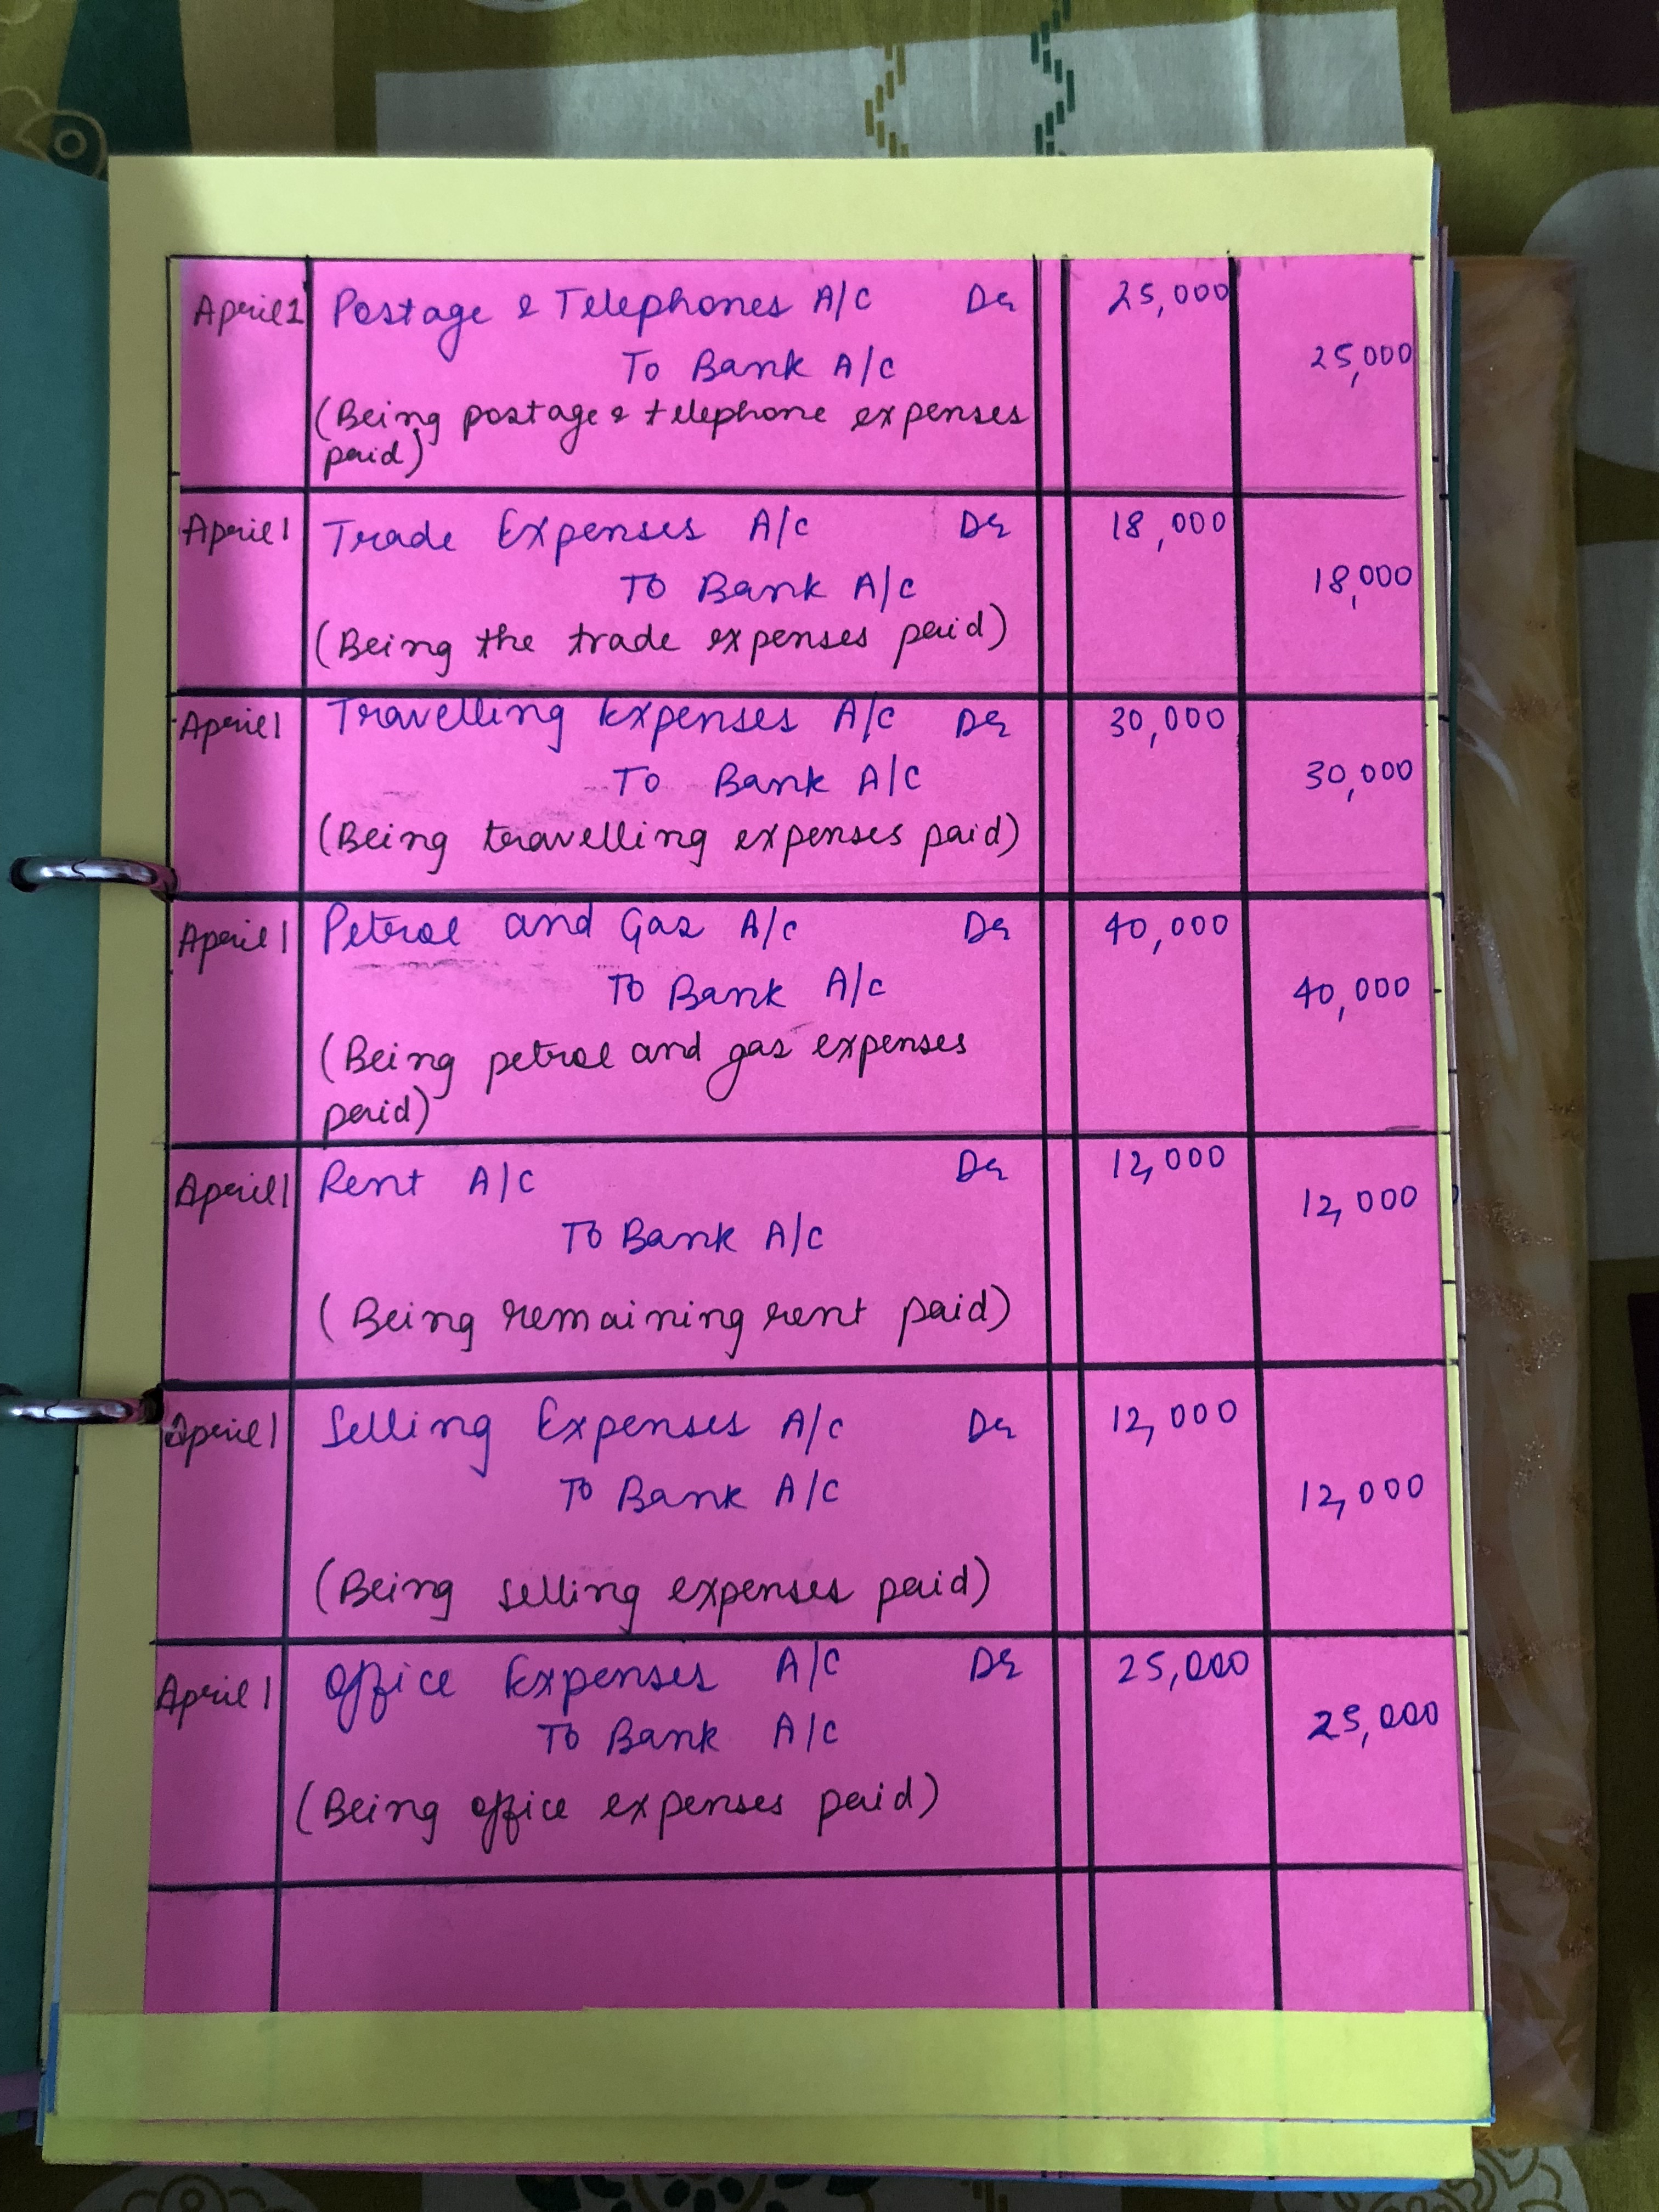 April 1 Postage & Telephones A/C Dr 25,000
To Bank A/C 25,000
(Being postage & telephone expenses
paid)
April 1 Trade Expenses A/C Dr 18,000
To Bank A/C 18,000
(Being the trade expenses paid)
April 1 Travelling Expenses A/C Dr 30,000
To Bank A/C 30,000
(Being travelling expenses paid)
April 1 Petrol and Gas A/C Dr 40,000
To Bank A/C 40,000
(Being petrol and gas expenses
paid)
April 1 Rent A/C Dr 12,000
To Bank A/C 12,000
(Being remaining rent paid)
April 1 Selling Expenses A/C Dr 12,000
To Bank A/C 12,000
(Being selling expenses paid)
April 1 Office Expenses A/C Dr 25,000
To Bank A/C 25,000
(Being office expenses paid)